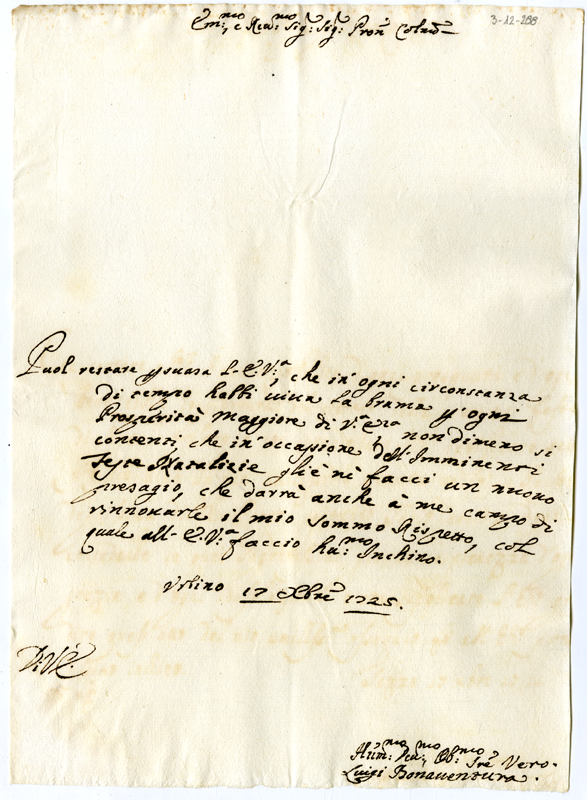 3-12-288
Em:mo e Reu:mo Sig:r Sig:r Pron Colmo
Puol restare psuasa l'E.V:a, che in ogni circonstanza
di tempo habbi uiua la brama p ogni
Prosperità Maggiore di V:a Eza, non dimeno si
contenti, che in occasione dell'Imminenti
Feste Natalizie gliè nè facci un nuouo
presagio, che darrà anche à me campo di
rinnouarle il mio sommo Rispetto, col
quale all'E.V:a faccio hu:mo Inchino.
Vrbino 17 Xbre 1725.
Di V.E.
Hum:mo Deu:mo Ob:mo Sre Vero.
Luigi Bonauentura.